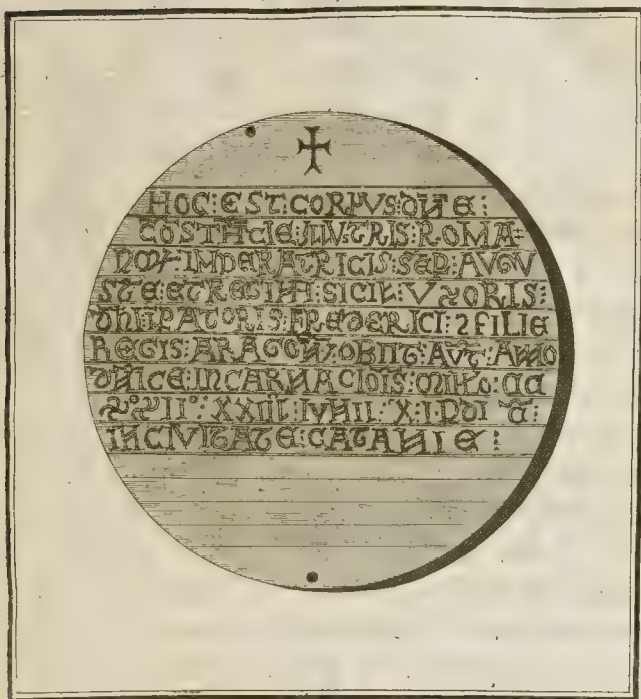 ✝
HOC:EST:CORPVS:DNE:
COSTACIE:ILLVSTRIS:ROMA-
NOꝝ:IMPERATRICIS:SEP:AVGV
STE:ET REGINA:SICIL:VXORIS:
DNI IPATORIS:FREDERICI:⁊FILIE
REGIS:ARAGON:OBIIT:AVT:ANNO
DNICE:INCARNACIOIS:MILLO:CC
XXIII IVNII X:INDI
IN CIVITATE:CATANIE: